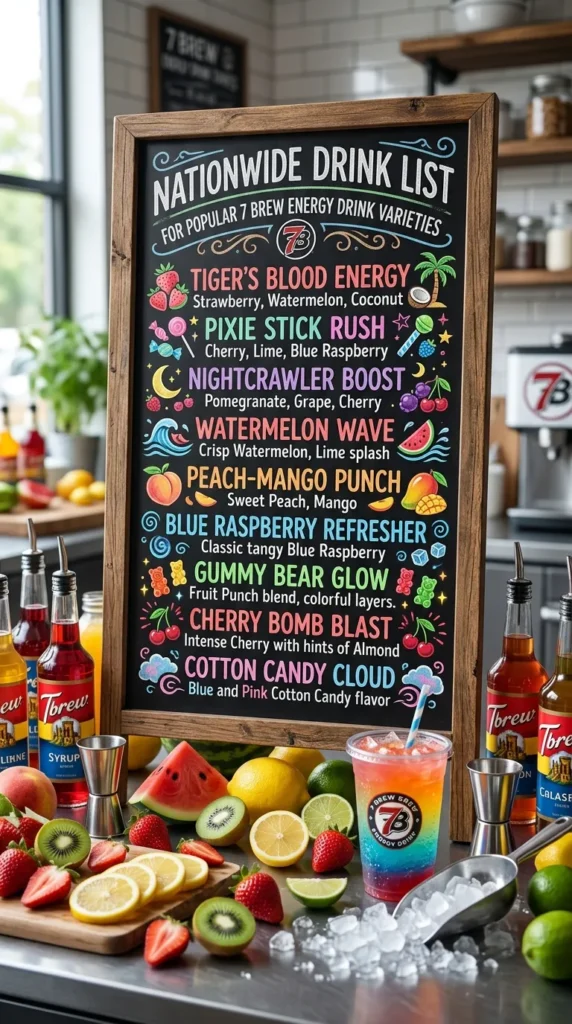 7 BREW
NATIONWIDE DRINK LIST
FOR POPULAR 7 BREW ENERGY DRINK VARIETIES
7B
TIGER'S BLOOD ENERGY
Strawberry, Watermelon, Coconut
PIXIE STICK RUSH
Cherry, Lime, Blue Raspberry
NIGHTCRAWLER BOOST
Pomegranate, Grape, Cherry
WATERMELON WAVE
Crisp Watermelon, Lime splash
PEACH-MANGO PUNCH
Sweet Peach, Mango
BLUE RASPBERRY REFRESHER
Classic tangy Blue Raspberry
GUMMY BEAR GLOW
Fruit Punch blend, colorful layers.
CHERRY BOMB BLAST
Intense Cherry with hints of Almond
COTTON CANDY CLOUD
Blue and Pink Cotton Candy flavor
7B
Tbrew
SYRUP
Tbrew
7B